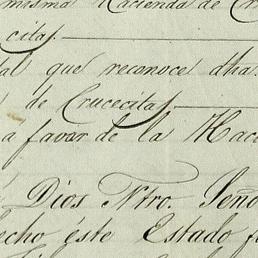 misma Hacienda de Cr
citas
tal que reconoce dha
de Crucecitas
a favor de la Hac
Dios Ntro. Seño
echo éste Estado